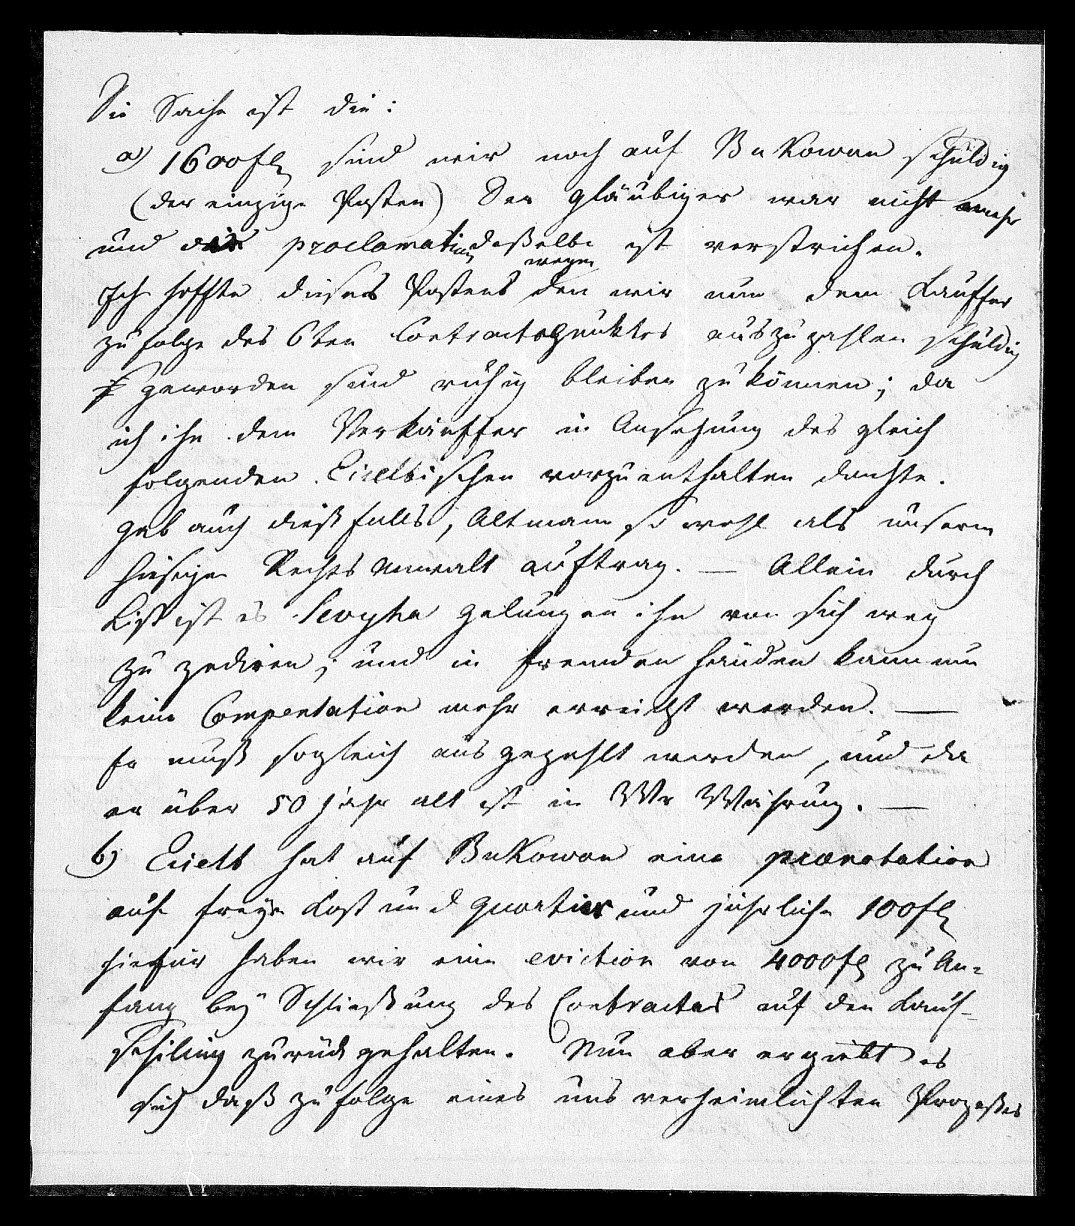 Die Sache ist die:
a) 1600 fl sind wir noch auf Bukowan schuldig
(der einzige Posten) Der Gläubiger war nicht mehr
und die proclamation desselben ist verstrichen.
Ich hoffte dieses Postens wegen den wir nun dem Kauffer
zufolge des 6ten Contractspunktes auszuzahlen schuldig
geworden sind ruhig bleiben zu können; da
ich ihn dem Verkäuffer in Ansehung des gleich
folgenden vorzuenthalten dachte.
gab auch dießfalls, Altmann so wohl als unserm
hiesigen Rechts Anwalt auftrag. — Allein durch
List ist es gelungen ihn von sich weg
zu zediren; und in fremden Händen kann nun
keine Compensation mehr erreicht werden. —
Er muß sogleich ausgezahlt werden, und da
er über 50 Jahr alt ist in Wr Währung. —
b) hat auf Bukowan eine praenotation
auf freye Kost und Quartier und jährliche 100 fl
hiefür haben wir eine eviction von 4000 fl zu An=
fang bey Schließung des Contractes auf den Kauf-
schilling zurück gehalten. Nun aber ergiebt es
sich daß zufolge eines uns verheimlichten Prozeßes